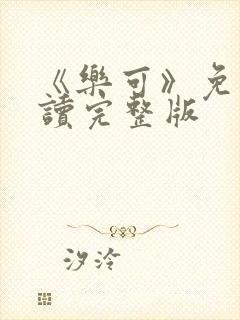 《樂可》免
讀完整版
汐泠